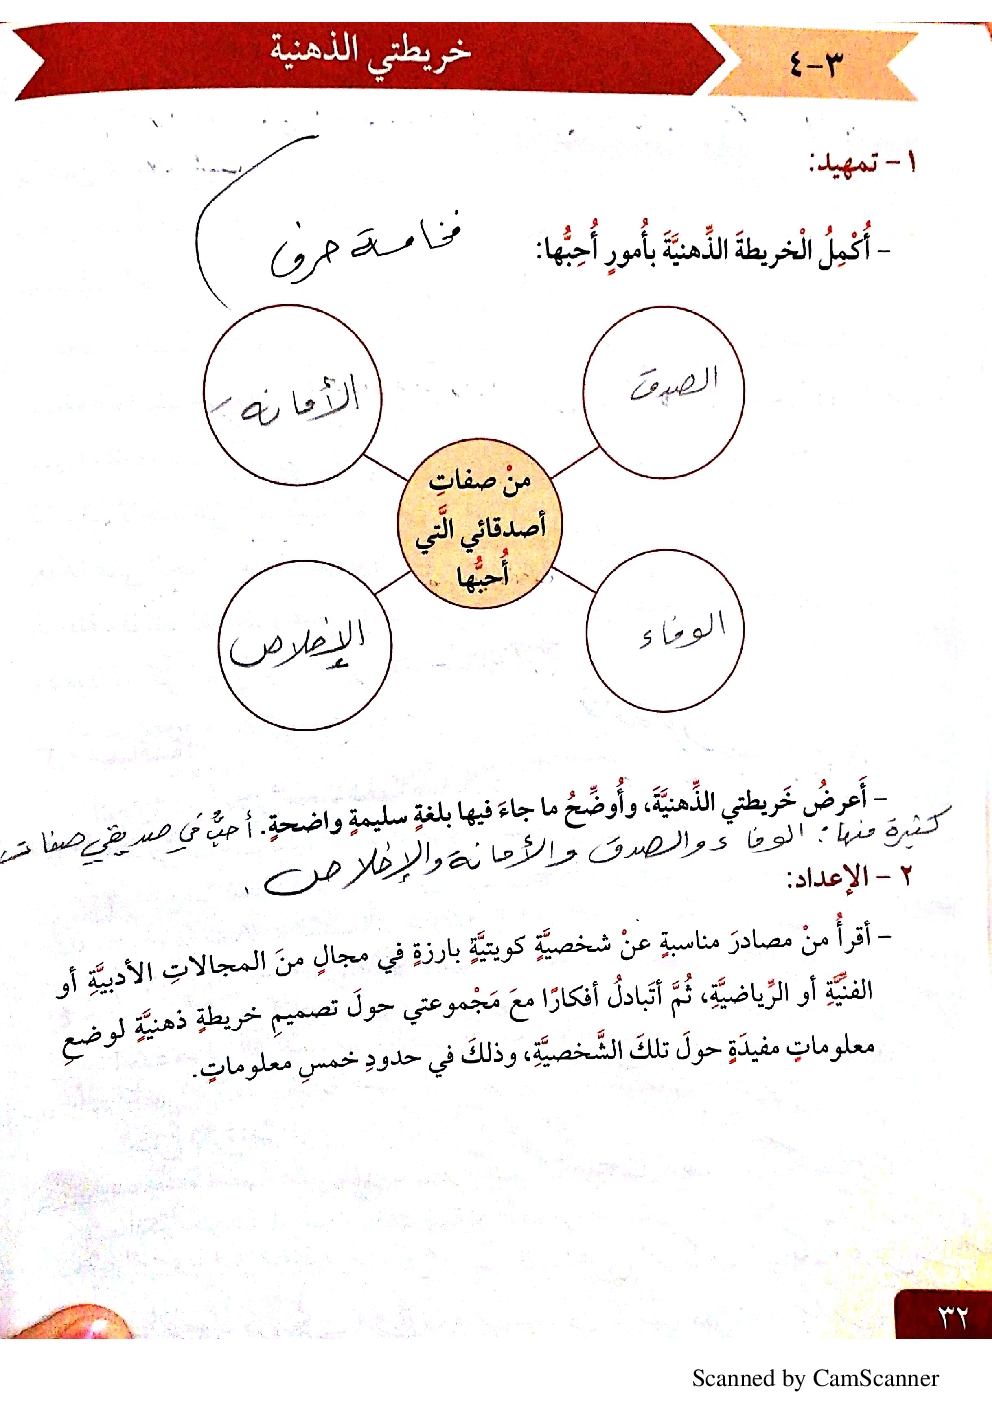 ٣-٤
خريطتي الذهنية
١ - تمهيد:
- أُكْمِلُ الْخريطةَ الذِّهنيَّةَ بأُمورٍ أُحِبُّها:
الصدق
الأمانه
منْ صفاتِ
أصدقائي الَّتي
أُحبُّها
الوفاء
الإخلاص
- أَعرضُ خَريطتي الذِّهنيَّةَ، وأُوضِّحُ ما جاءَ فيها بلغةٍ سليمةٍ واضحةٍ. أحبُّ في صديقي صفات
كثيرة منها: الوفاء والصدق والأمانة والإخلاص.
٢ - الإعداد:
- أقرأُ منْ مصادرَ مناسبةٍ عنْ شخصيَّةٍ كويتيَّةٍ بارزةٍ في مجالٍ منَ المجالاتِ الأدبيَّةِ أو
الفنيَّةِ أو الرِّياضيَّةِ، ثُمَّ أتَبادلُ أفكارًا معَ مَجْموعتي حولَ تصميمِ خريطةٍ ذهنيَّةٍ لوضعِ
معلوماتٍ مفيدَةٍ حولَ تلكَ الشَّخصيَّةِ، وذلكَ في حدودِ خمسِ معلوماتٍ.
٣٢
Scanned by CamScanner